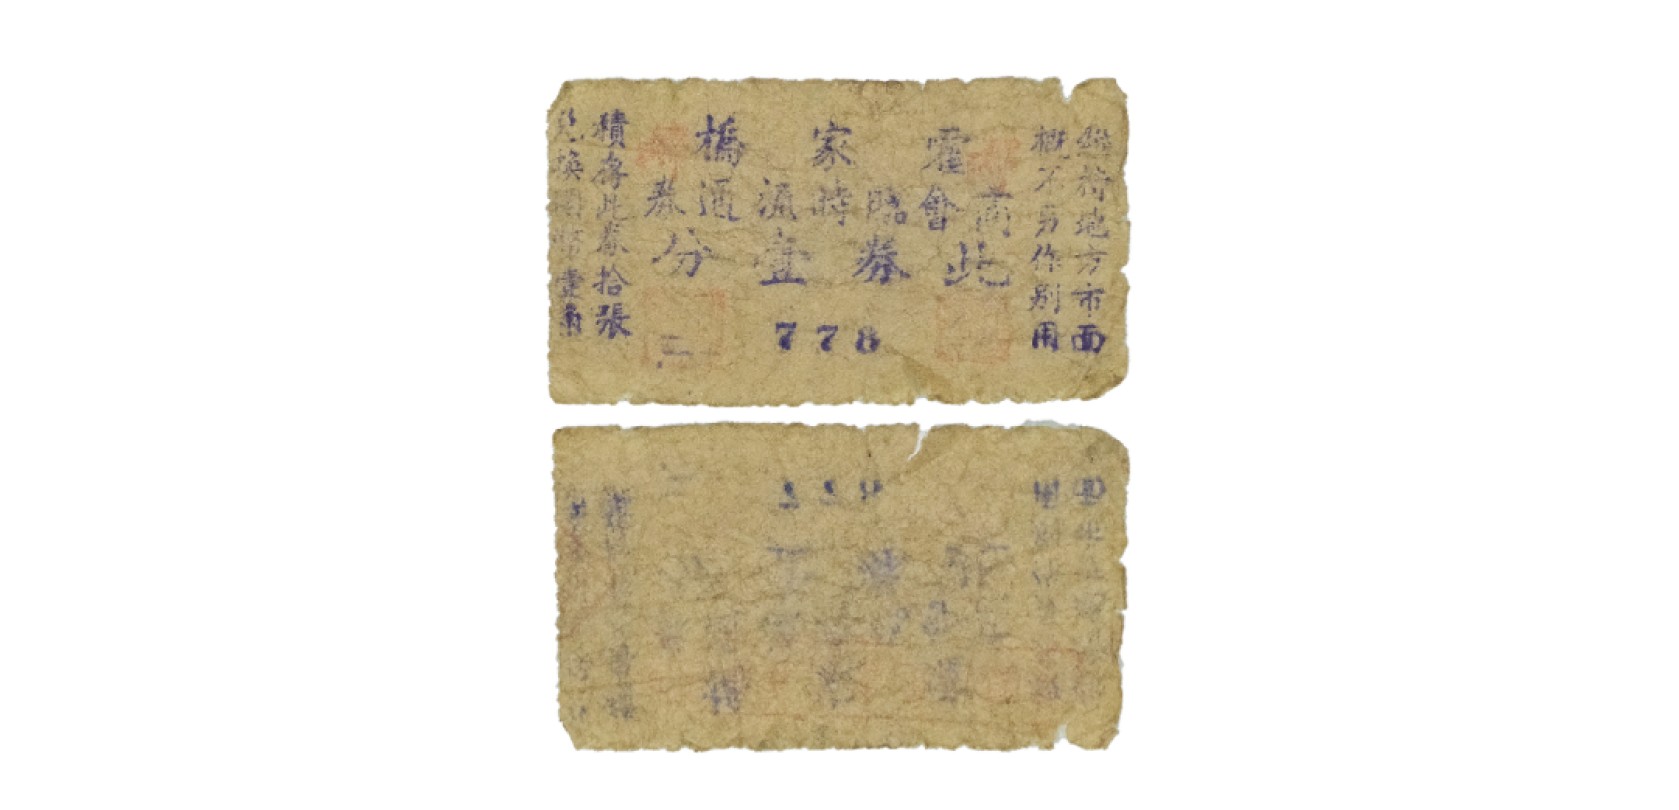 霍家橋
商會臨時流通券
此券壹分
778
二
維持地方市面
概不另作別用
積存此券拾張
兌換國幣壹角